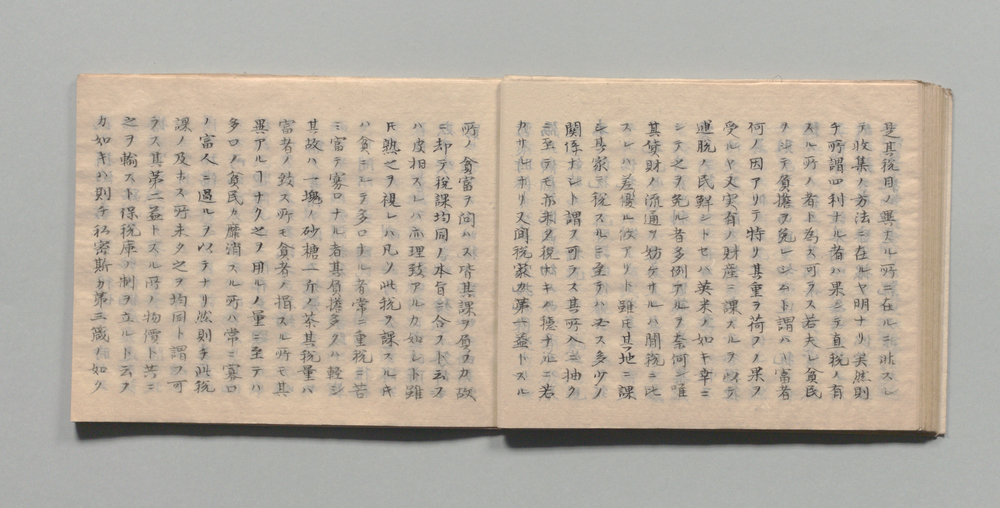 是其税目ノ異ナル所ニ在ルニ非スシ
テ收集ノ方法ニ在ルヤ明ナリ実然則
チ所謂四利ナル者ハ果シテ直税ノ有
スル所ノ者ト為ス可ラス若夫レ貧民
ヲシテ貧擔ヲ免レシムト謂ハハ富者
何ノ因アリテ特リ其重ヲ荷フノ果ヲ
受ルヤ又実有ノ財産ニ課スルヲ以テ
逋脱ノ民鮮シトセハ英米ノ如キ幸ニ
シテ之ヲ免ル者多例アルヲ奈何ニ唯
其貨財ノ流通ヲ妨ケサルハ関税ニ比
スレハ差優ル所アリト雖氏其地ニ課
シ其家ニ税スルニ至テハ必ス多少ノ
関係ナシト謂フ可ラス其所入ニ抽ク
ニ至テモ亦来名役
カサル
リ又間税家カ第一益トスル
所ノ貧富ヲ問ハス皆其課ヲ負フカ故
ニ却テ税課均同ノ本旨ニ合フト云フ
ハ皮相スレハ亦理致アルカ如シト雖
氏熟之ヲ視レハ凡ソ此税ヲ課スルキ
ハ貧ニシテ多口ナル者常ニ重税ニ苦
ミ富テ寡口ナル者其負擔多クハ軽シ
其故ハ一塊ノ砂糖一斤ノ茶其税量ハ
富者ノ致ス所モ貧者ノ損スル所モ其
異アルナク之ヲ用ルノ量ニ至テハ
多口ノ貧民カ靡消スル所ハ常ニ寡口
ノ富人ニ過ルヲ以テナリ然則チ此税
課ノ及ホス所未タ之ヲ均同ト謂フ可
ラス其第二益トスル所ノ物價ト共ニ
之ヲ輸スト保税庫ノ制ヲ立ルト云フ
カ如キハ則チ弥密斯カ第三歳ノ如ク